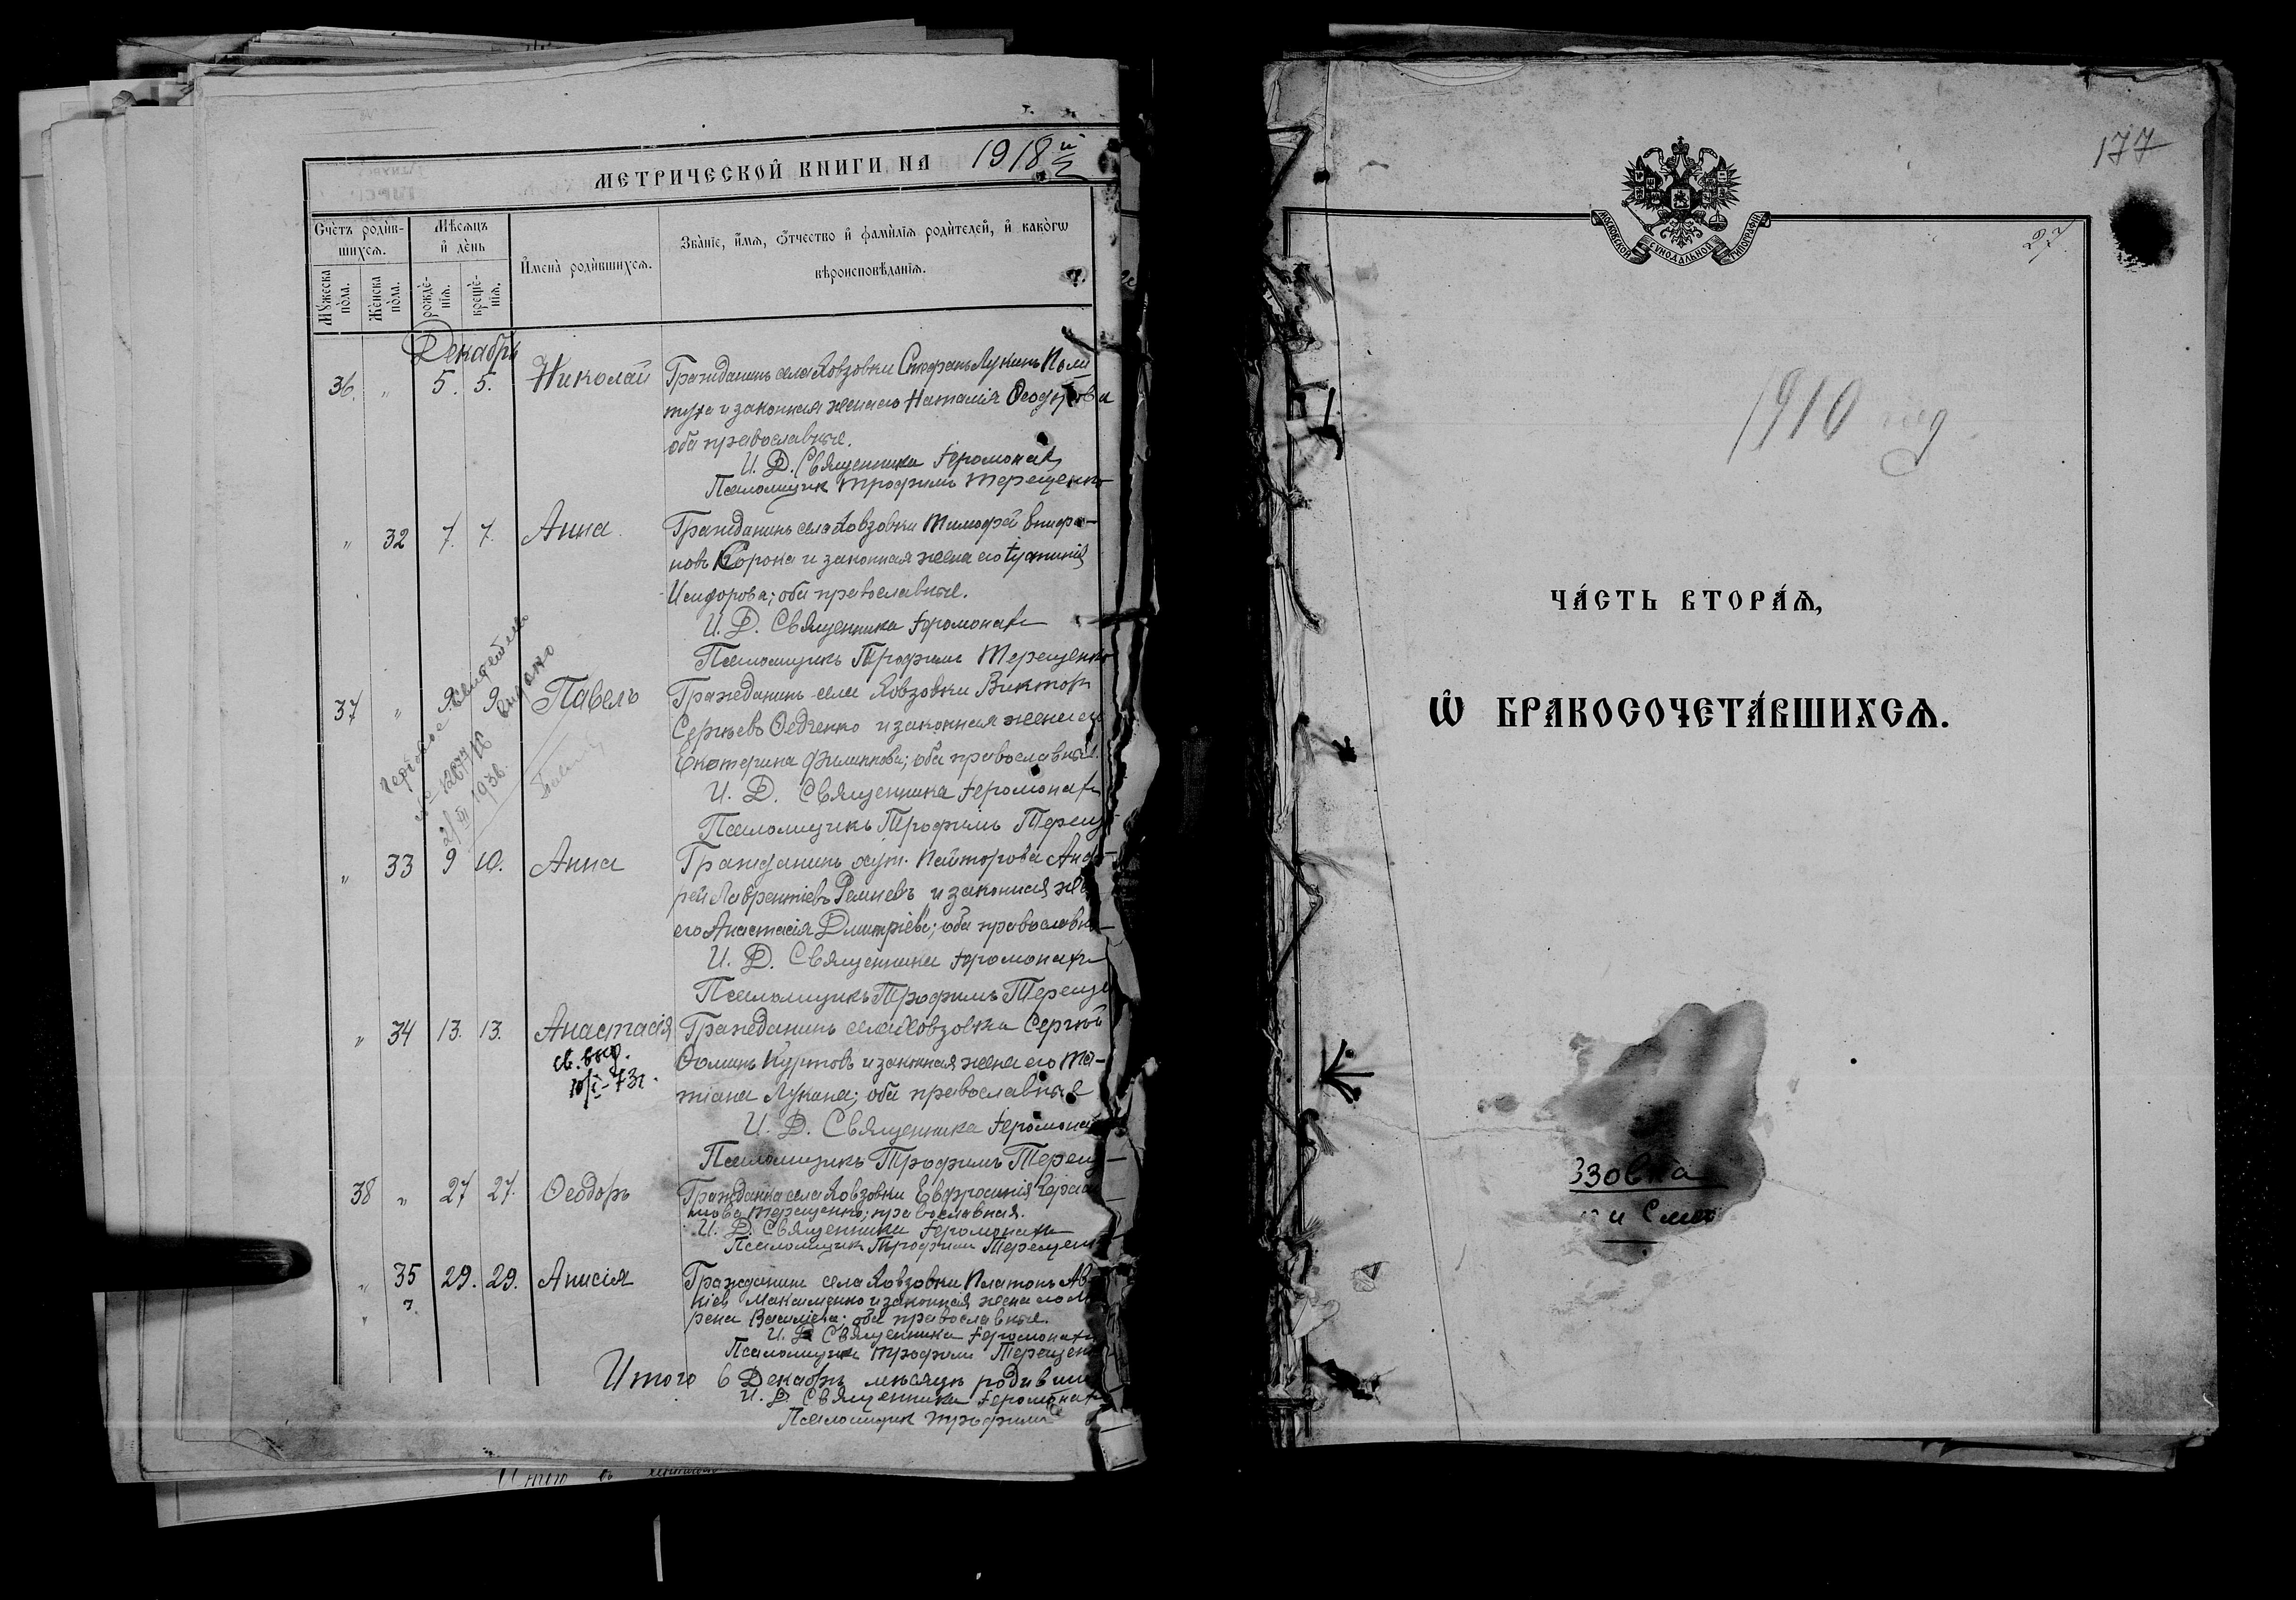 МЕТРИЧЕСКОЙ КНИГИ НА 1918й
Счетъ родив-
шихся.
Мужеска пола.
Женска пола.
Мѣсяцъ
и день
рожде-
нія.
креще-
нія.
Имена родившихся.
Званіе, имя, отчество и фамилія родителей, и какогѡ
вѣроисповѣданія.
Декабрь
36. " 5. 5. Николай Гражданинъ села Ховзовки Стефанъ Лукинъ
и законная жена его Наталія Ѳеодорова
оба православные.
И. Д. Священника Іеромонахъ
Псаломщик Трофимъ Терещенко
" 32 7. 7. Анна Гражданинъ села Ховзовки Тимофей Епифа-
новъ Сорока и законная жена его
Исидорова; оба православные.
И. Д. Священника Іеромонахъ
Псаломщикъ Трофимъ Терещенко
37 " 9 9 Павелъ Гражданинъ села Ховзовки Виктор
Сергѣевъ Федченко и законная жена его
Екатерина Филиппова; оба православные.
И. Д. Священника Іеромонахъ
Псаломщикъ Трофимъ Терещ
Гербовое свидетел
выдано
1936.
" 33 9 10. Анна Гражданинъ хут. Анд-
рей Лаврентіевъ и законная же
его Анастасія Дмитріева; оба православн
И. Д. Священника Іеромонахъ
Псаломщикъ Трофимъ Терещ
" 34 13. 13. Анастасія Гражданинъ села Ховзовки Сергѣй
св. выд.
10/I-73г.
Ѳоминъ Куртовъ и законная жена его Та-
тіана Лукина; оба православные
И. Д. Священника Іеромонах
Псаломщикъ Трофимъ Терещ
38 " 27 27. Ѳеодоръ Гражданка села Ховзовки Евфросинія
Терещенко; православная.
И. Д. Священника Іеромонахъ
Псаломщик Трофим Терещен
" 35 29. 29. Анисія Гражданин села Ховзовки Платонъ Ав-
кіев Максименко и законная жена его
рена Васильева; оба православные.
И. Д. Священника Іеромонахъ
Псаломщик Трофим Терещен
Итого в Декабрѣ мѣсяцѣ родивши
И. Д. Священника Іеромонах
Псаломщик Трофим
177
МОСКОВСКОЙ СѴНОДАЛЬНОЙ ТИПОГРАФІИ
27.
1910 год
ЧА́СТЬ ВТОРА́Ѧ,
Ѡ БРАКОСОЧЕТА́ВШИХСѦ.
взовка